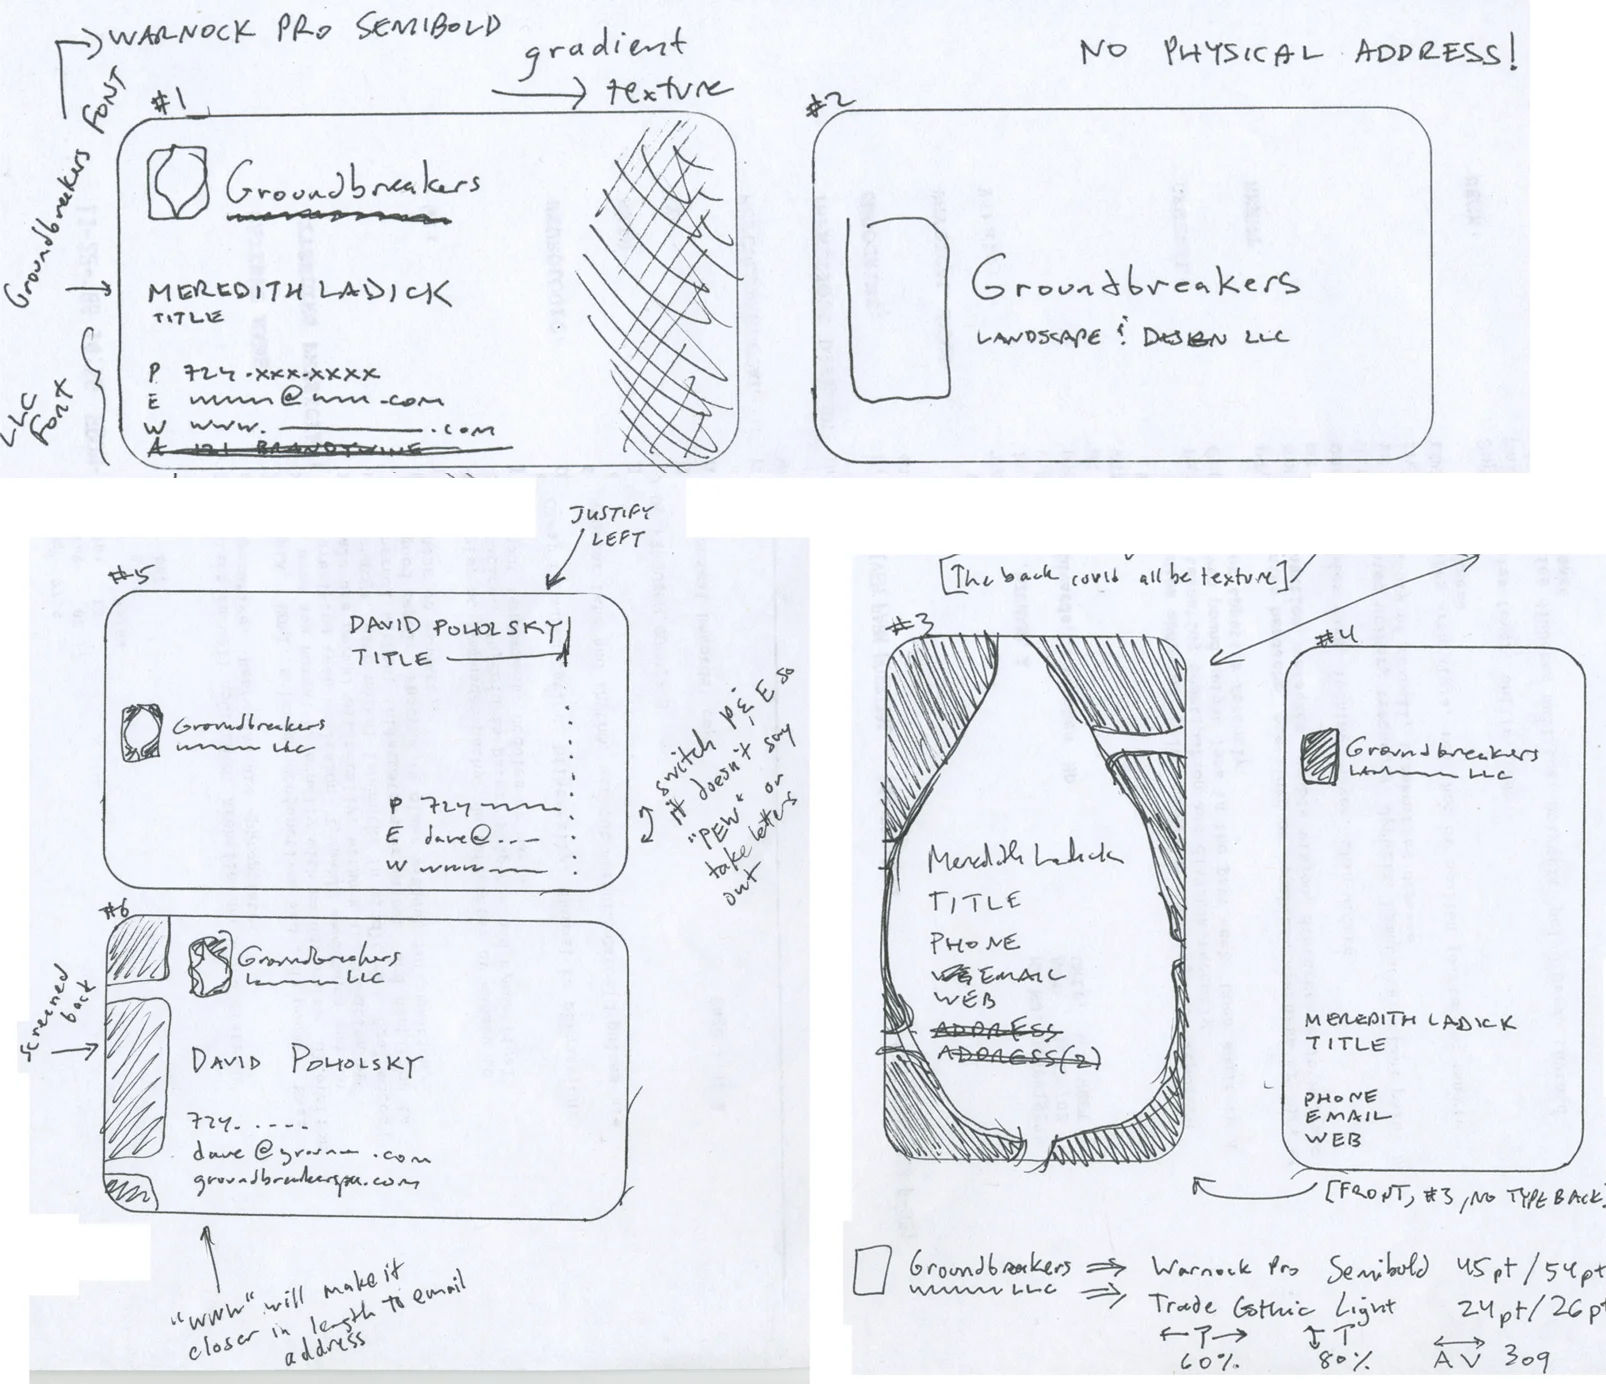 WARNOCK PRO SEMIBOLD
gradient
texture
Groundbreakers FONT
LLC FONT
#1
Groundbreakers
MEREDITH LADICK
TITLE
P 724-XXX-XXXX
E @ .com
W www. .com
A 121 BRANDYWINE
NO PHYSICAL ADDRESS!
#2
Groundbreakers
LANDSCAPE & DESIGN LLC
JUSTIFY
LEFT
#5
DAVID POHOLSKY
TITLE
Groundbreakers
LLC
P 724
E dave@...
W www
switch P & E so
it doesn't say
"PEW" or
take letters
out
#6
Groundbreakers
LLC
screened
back
DAVID POHOLSKY
724.....
dave@groun .com
groundbreakerspa.com
"www" will make it
closer in length to email
address
[The back could all be texture]
#3
Meredith Ladick
TITLE
PHONE
EMAIL
WEB
ADDRESS
ADDRESS(2)
#4
Groundbreakers
LLC
MEREDITH LADICK
TITLE
PHONE
EMAIL
WEB
[FRONT, #3, NO TYPE BACK]
Groundbreakers ⇒ Warnock Pro Semibold 45pt/54pt
LLC ⇒ Trade Gothic Light 24pt/26pt
←T→ ↕T ↔
60% 80% AV 309